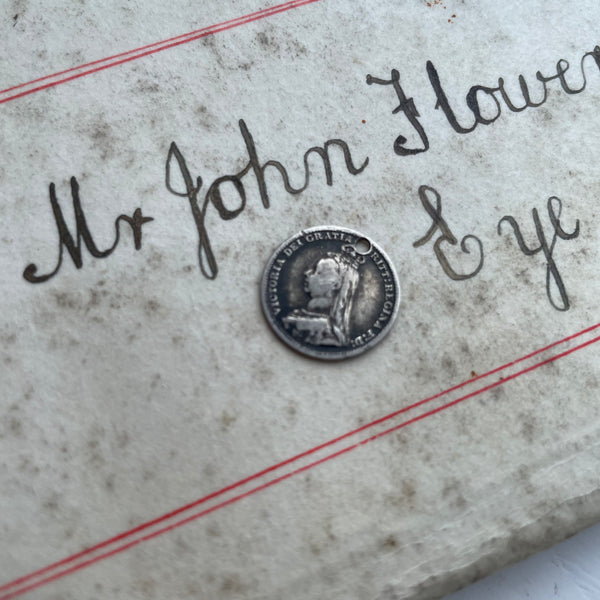 Mr John Flower
Eye
VICTORIA DEI GRATIA BRITT: REGINA F:D: